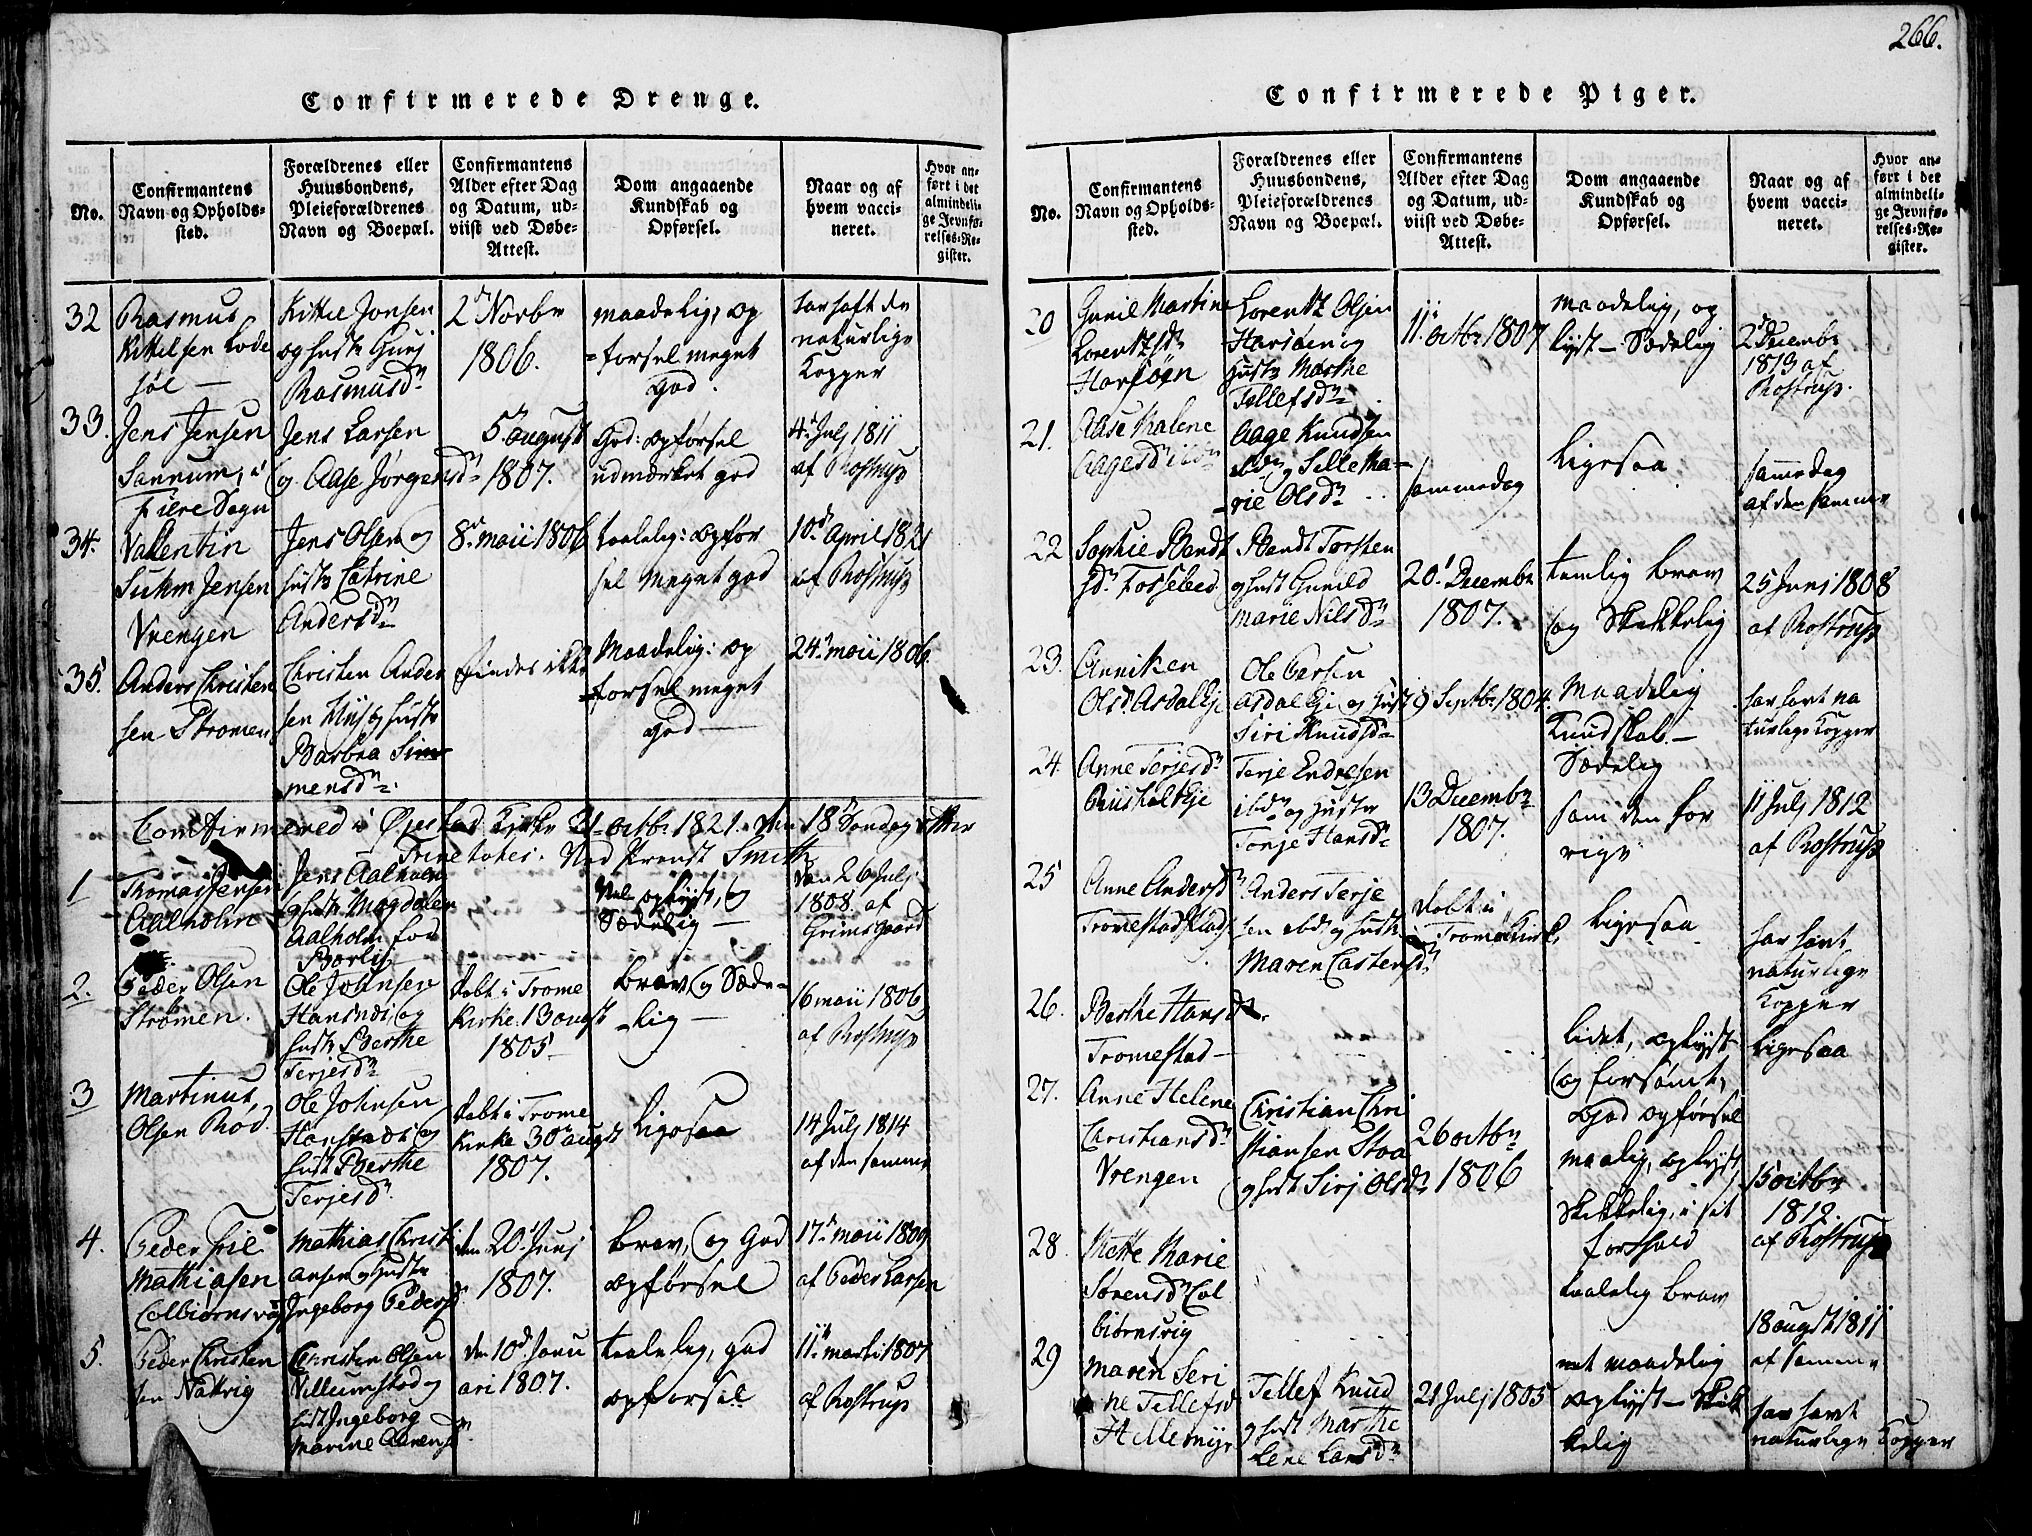 266.
Confirmerede Drenge.
No.
Confirmantens
Navn og Opholds-
sted.
Forældrenes eller
Huusbondens,
Pleieforældrenes
Navn og Boepæl.
Confirmantens
Alder efter Dag
og Datum, ud-
viist ved Døbe-
Attest.
Dom angaaende
Kundskab og
Opførsel.
Naar og af
hvem vacci-
neret.
Hvor an-
ført i det
almindeli-
ge Jevnfø-
relses-Re-
gister.
32
Rasmus
Kittelsen Lode
søl —
Kittel Jonsen
og hust: Gurj
Rasmusdr
2 Novbr
1806.
maadelig, op
=forsel meget
God.
har haft de
naturlige
Kopper
33.
Jens Jensen
Sannum, i
Fiere Sogn
Jens Larsen
og Aase Jørgensdr
5 august
1807.
God: opførsel
udmærket god
4 Julj 1811
af Rostrup
34.
Vallentin
Jensen
Vrengen
Jens Olsen og
hust: Catrine
Andersdr
8 maii 1806
taalelig: opfør
sel meget god
10d April 1821
af Rostrup
35.
Anders Christen
sen Strømen
Christen Ander
sen og hust:
Barbra Sim
mensdr
findes ikke
Maadelig: op
=forsel meget
God —
24 maii 1806.
Confirmered i Øjestad Kirke 21 octbr 1821. den 18 Søndag efter
Trinetates. Ved Provst Smith
1
Thomas Jensen
Aalholm
Jens Aalholm
og hust: Magdalen
Aalholm fød
Vel oplyst, og
Sædelig —
den 26 Julj
1808. af
Grimsgaard
2.
Peder Olsen
Strømen.
Ole Johnsen
og
hust: Berthe
Terjesdr
døbt i Trome
Kirke 13 augst
1805 —
brav, og Sæde-
-lig —
16 maii 1806
af Rostrup
3
Martinus
Olsen Rød.
Ole Johnsen
og
hust Berthe
Terjesdr.
døbt i Trome
Kirke 30 augst
1807.
ligesaa
14 Julj 1814
af den samme
4.
Peder
Mathiasen
Colbiørnsvig
Mathias Christi
ansen og hust:
Ingeborg Pedersd
den 20 Junj
1807.
brav, og God
opførsel
17 maii 1809
af Peder Larsen
5.
Peder Christen
sen Natvig
Christen Olsen
Villumstad og
hust Ingeborg
Marine
den 10d Janu
ari 1807.
taalelig, god
opforsel
11 marti 1807
af Rostrup
Confirmerede Piger.
No.
Confirmantens
Navn og Opholds-
sted.
Forældrenes eller
Huusbondens,
Pleieforældrenes
Navn og Boepæl.
Confirmantens
Alder efter Dag
og Datum, ud-
viist ved Døbe-
Attest.
Dom angaaende
Kundskab og
Opførsel.
Naar og af
hvem vacci-
neret.
Hvor an-
ført i det
almindeli-
ge Jevnfø-
relses-Re-
gister.
20
Gunil Martine
Lorentzdr
Havsøen
Lorentz Olsen
Havsøen og
hust: Marthe
Tellefsdr
11 octbr 1807
maadelig, op
lyst — Sædelig
2 Decembr
1813 af
Rostrup.
21.
Aase Malene
Aagesdr ibdm
Aage Knudsen
ibdm og Sille Ma-
-rie Olsdr
sammedag
ligesaa
sammedag
af den samme
22
Sophie Bendt
sdr Fossebed
Bendt Torsten
og hust Gunild
Marie Nilsdr
20 Decembr
1807.
temlig brav
og Skikkelig
25 Junj 1808
af Rostrup
23.
Anniken
Olsd. Asdal Eje
Ole Larsen
Asdal Eje og hust
Siri Knudsdr
9 Septbr 1804.
Maadelig
Kundskab —
Sædelig
har havt na
turlige Kopper
24.
Anne Terjesdr
Riisholt Eje
Terje Endresen
ibdm og hustr
Tonje Hansdr
13 Decembr
1807.
som den for
rige
11 Julj 1812
af Rostrup
25
Anne Andersdr
Tromestad Plads
Anders Terje
sen ibd og hustr
Maren Castensdr
døbt i
Trome Kirk.
ligesaa
har havt
naturlige
Kopper
26.
Berthe Hansdr
Tromestad —
lidet, oplyst
og forsømt,
God opførsel
ligesaa
27.
Anne Helene
Christiansdr
Vrengen
Christian Chri
stiansen Stoa
og hust Sirj Olsdr
26 octbr
1806
maalig, oplyst,
Skikkelig, i sit
forhold
15 octbr
1812.
af Rostrup
28
Mette Marie
Sørensdr Col
biørnsvig
taalelig brav
18 augst 1811
af samme
29
Maren Seri
ne Tellefsd
Hellemyr
Tellef Knud
og hust Marthe
Lene Larsdr
21 Julj 1805
met maadelig
oplyst — Skik
kelig
har havt
naturlige Kopper